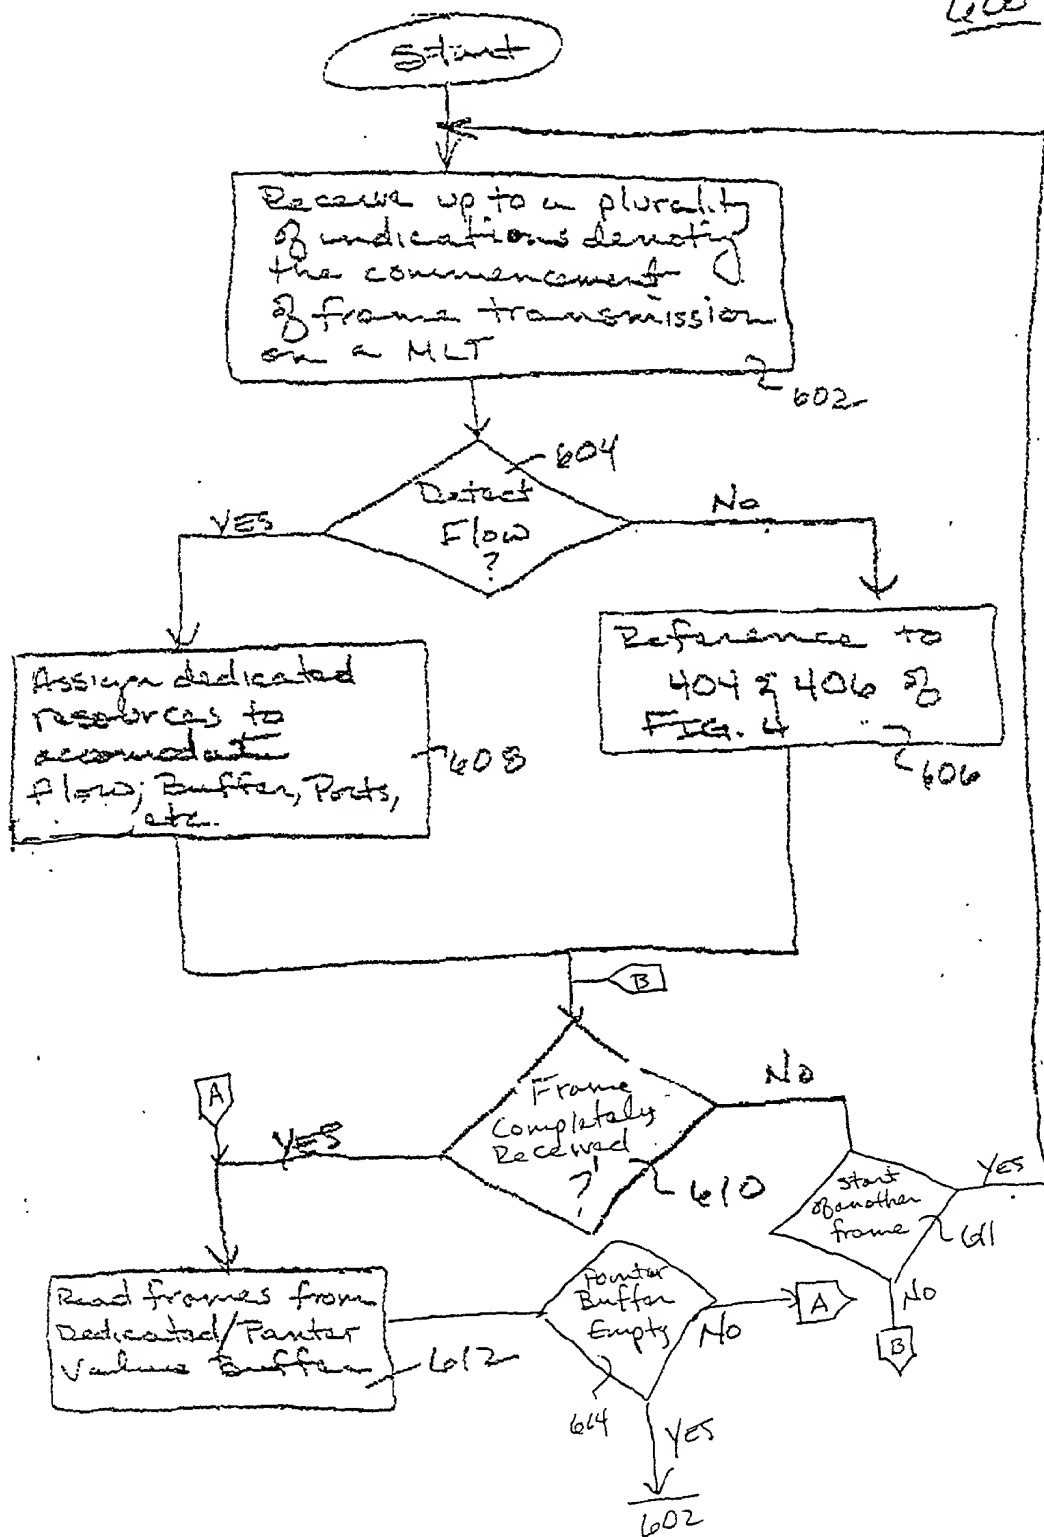 600
Start
Receive up to a plurality
of indications denoting
the commencement
of frame transmission
on a MLT
602
604
Detect
Flow
?
YES
No
Assign dedicated
resources to
accomodate
flow; Buffer, Ports,
etc.
608
Reference to
404 & 406 of
FIG. 4
606
B
A
Frame
Completely
Received
?
610
YES
No
Start
of another
frame
611
YES
NO
B
Read frames from
Dedicated/Pointer
Values Buffer
612
Pointer
Buffer
Empty
614
NO
A
YES
602